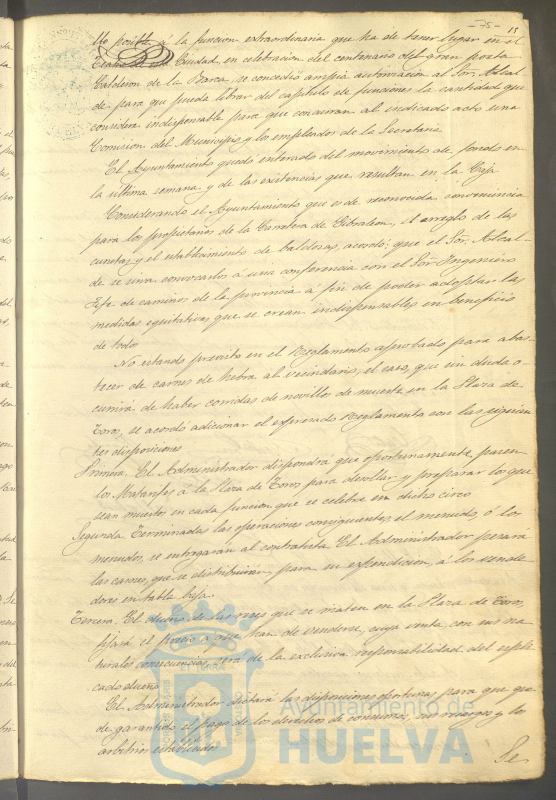 -75- 15
to posible á la funcion extraordinaria que ha de tener lugar en el
Teatro de esta Ciudad, en celebracion del centenario del gran poeta
Calderon de la Barca, se concedió amplia autorizacion al Sor. Alcal-
de para que pueda librar del capítulo de funciones la cantidad que
considere indispensable para que concurran al indicado acto una
Comision del Municipio y los empleados de la Secretaria.
El Ayuntamiento quedó enterado del movimiento de fondos en
la última semana y de las existencias que resultan en la Caja.
Considerando el Ayuntamiento que es de reconocida conveniencia
para los propietarios de la Carretera de Gibraleon, el arreglo de las
cunetas y el establecimiento de baldosas, acordó: que el Sor. Alcal-
de se sirva convocarlos a una conferencia con el Sor. Ingeniero
Gefe de caminos de la provincia á fin de poder adoptar las
medidas equitativas que se crean indispensables en beneficio
de todo.
No estando previsto en el Reglamento aprobado para abas-
tecer de carnes de hebra al vecindario, el caso, que sin duda o-
currirá de haber corridas de novillos de muerte en la Plaza de
Toros, se acordó adicionar el espresado Reglamento con las siguien-
tes disposiciones
Primera, El Administrador dispondrá que oportunamente pasen
los Matarifes á la Plaza de Toros para desollar y preparar los que
sean muertos en cada funcion que se celebre en dicho circo
Segunda Terminadas las operaciones consiguientes, el menudo, ó los
menudos, se entregarán al contratista. El Administrador pesará
las carnes, que se distribuirán, para su expendicion, á los vende-
dores en tabla baja.
Tercera. El dueño de las reses que se maten en la Plaza de Toros,
fijará el precio á que han de venderse, cuya venta, con sus na-
turales consecuencias, será de la exclusiva responsabilidad del espli-
cado dueño.
El Administrador dictará las disposiciones oportunas para que que-
de garantido el pago de los derechos de consumos, sus recargos y los
arbitrios establecidos.
Se
Ayuntamiento de
HUELVA